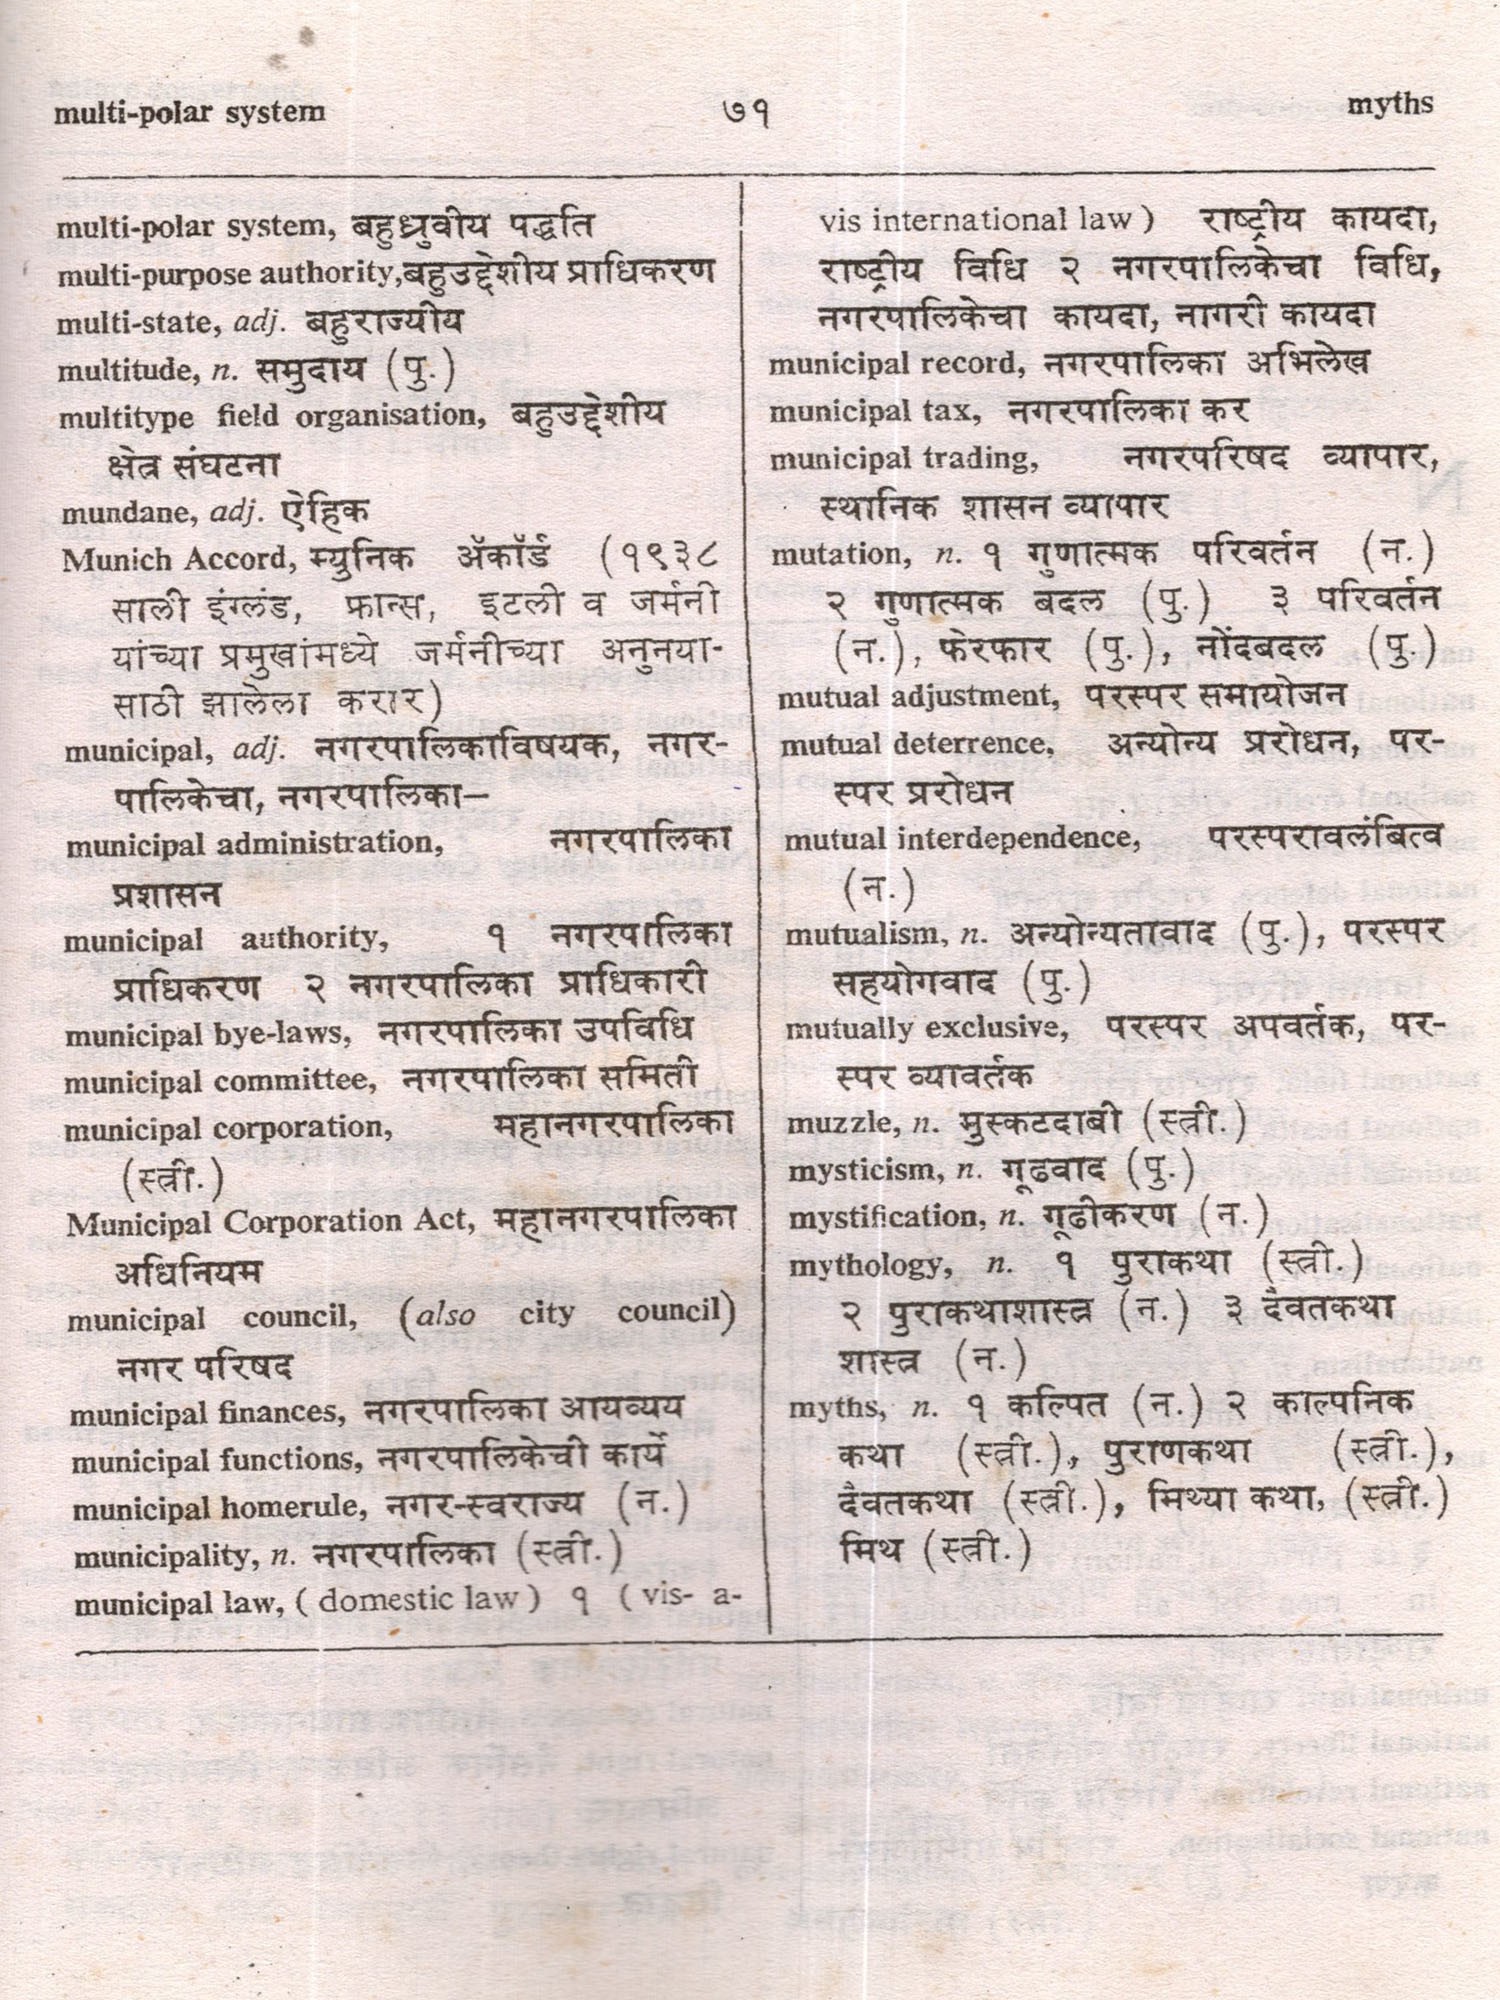 multi-polar system ७१ myths
multi-polar system, बहुध्रुवीय पद्धति
multi-purpose authority,बहुउद्देशीय प्राधिकरण
multi-state, adj. बहुराज्यीय
multitude, n. समुदाय (पु.)
multitype field organisation, बहुउद्देशीय
क्षेत्र संघटना
mundane, adj. ऐहिक
Munich Accord, म्युनिक ॲकॉर्ड (१९३८
साली इंग्लंड, फ्रान्स, इटली व जर्मनी
यांच्या प्रमुखांमध्ये जर्मनीच्या अनुनया-
साठी झालेला करार)
municipal, adj. नगरपालिकाविषयक, नगर-
पालिकेचा, नगरपालिका—
municipal administration, नगरपालिका
प्रशासन
municipal authority, १ नगरपालिका
प्राधिकरण २ नगरपालिका प्राधिकारी
municipal bye-laws, नगरपालिका उपविधि
municipal committee, नगरपालिका समिती
municipal corporation, महानगरपालिका
(स्त्री.)
Municipal Corporation Act, महानगरपालिका
अधिनियम
municipal council, (also city council)
नगर परिषद
municipal finances, नगरपालिका आयव्यय
municipal functions, नगरपालिकेची कार्ये
municipal homerule, नगर-स्वराज्य (न.)
municipality, n. नगरपालिका (स्त्री.)
municipal law, ( domestic law ) १ ( vis- a-
vis international law ) राष्ट्रीय कायदा,
राष्ट्रीय विधि २ नगरपालिकेचा विधि,
नगरपालिकेचा कायदा, नागरी कायदा
municipal record, नगरपालिका अभिलेख
municipal tax, नगरपालिका कर
municipal trading, नगरपरिषद व्यापार,
स्थानिक शासन व्यापार
mutation, n. १ गुणात्मक परिवर्तन (न.)
२ गुणात्मक बदल (पु.) ३ परिवर्तन
(न.), फेरफार (पु.), नोंदबदल (पु.)
mutual adjustment, परस्पर समायोजन
mutual deterrence, अन्योन्य प्ररोधन, पर-
स्पर प्ररोधन
mutual interdependence, परस्परावलंबित्व
(न.)
mutualism, n. अन्योन्यतावाद (पु.), परस्पर
सहयोगवाद (पु.)
mutually exclusive, परस्पर अपवर्तक, पर-
स्पर व्यावर्तक
muzzle, n. मुस्कटदाबी (स्त्री.)
mysticism, n. गूढवाद (पु.)
mystification, n. गूढीकरण (न.)
mythology, n. १ पुराकथा (स्त्री.)
२ पुराकथाशास्त्र (न.) ३ दैवतकथा
शास्त्र (न.)
myths, n. १ कल्पित (न.) २ काल्पनिक
कथा (स्त्री.), पुराणकथा (स्त्री.),
दैवतकथा (स्त्री.), मिथ्या कथा, (स्त्री.)
मिथ (स्त्री.)